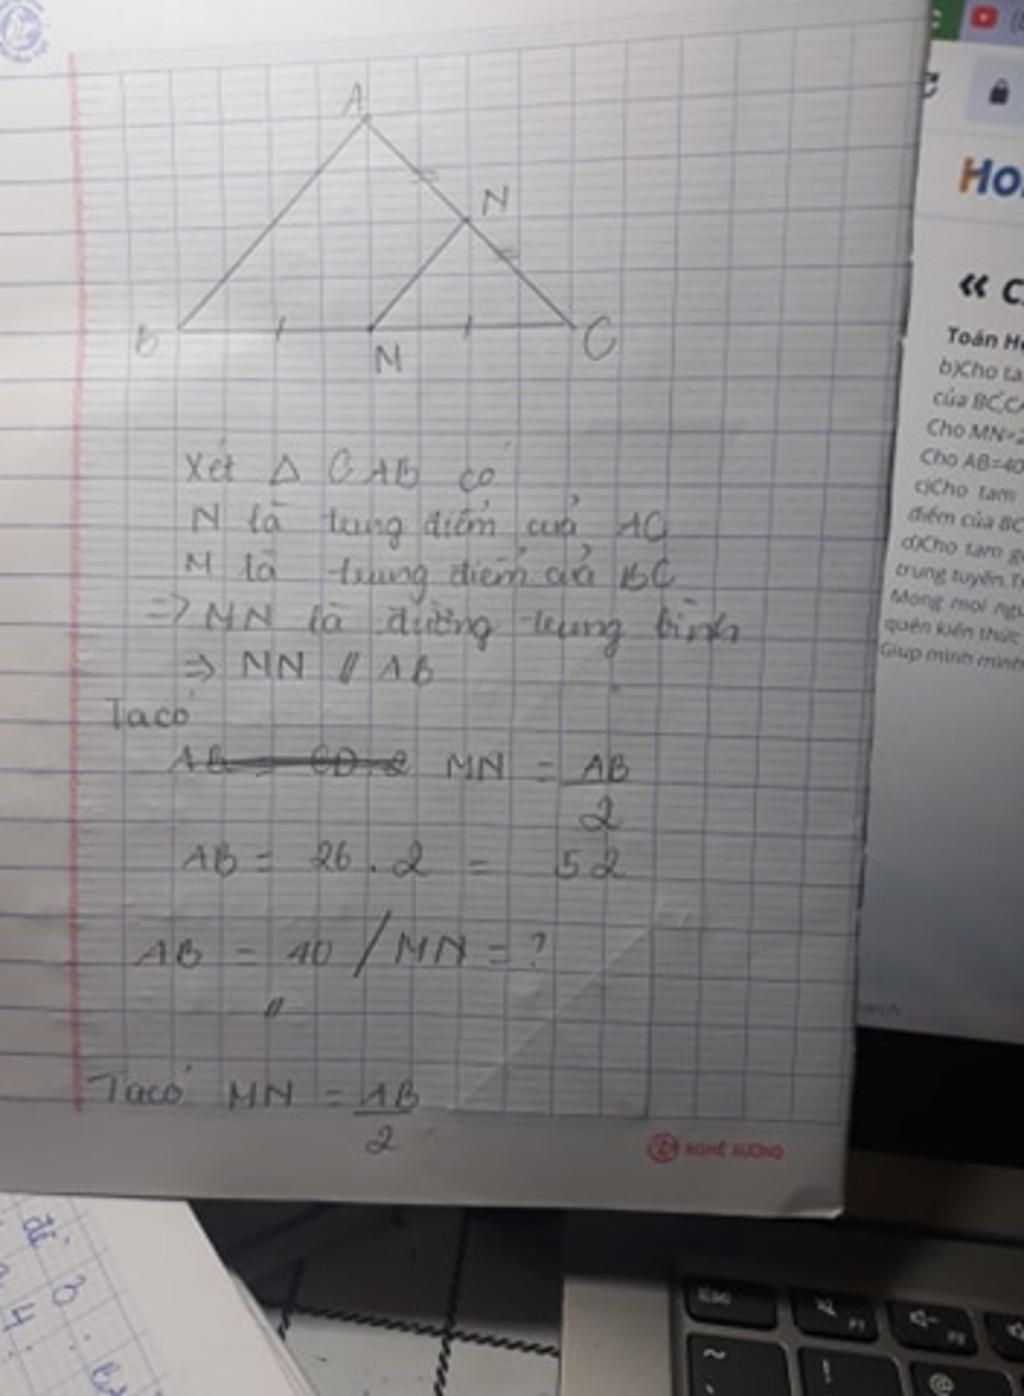 A
N
B
M
C
Xét Δ CAB có
N là trung điểm của AC
M là trung điểm của BC
=> MN là đường trung bình
=> MN // AB
Ta có
MN = AB
2
AB = 26 . 2 = 52
AB = 40 / MN = ?
//
Ta có MN = AB
2
NGHÊ XƯƠNG
Ho
« C
Toán H
b)Cho ta
của BC,C
Cho MN=2
Cho AB=40
c)Cho tam
điểm của BC
d)Cho tam g
trung tuyến.T
Mong mọi ng
quên kiến thức
Giup minh minh
đề
3
4.
esc
F1
F2
~
!
@